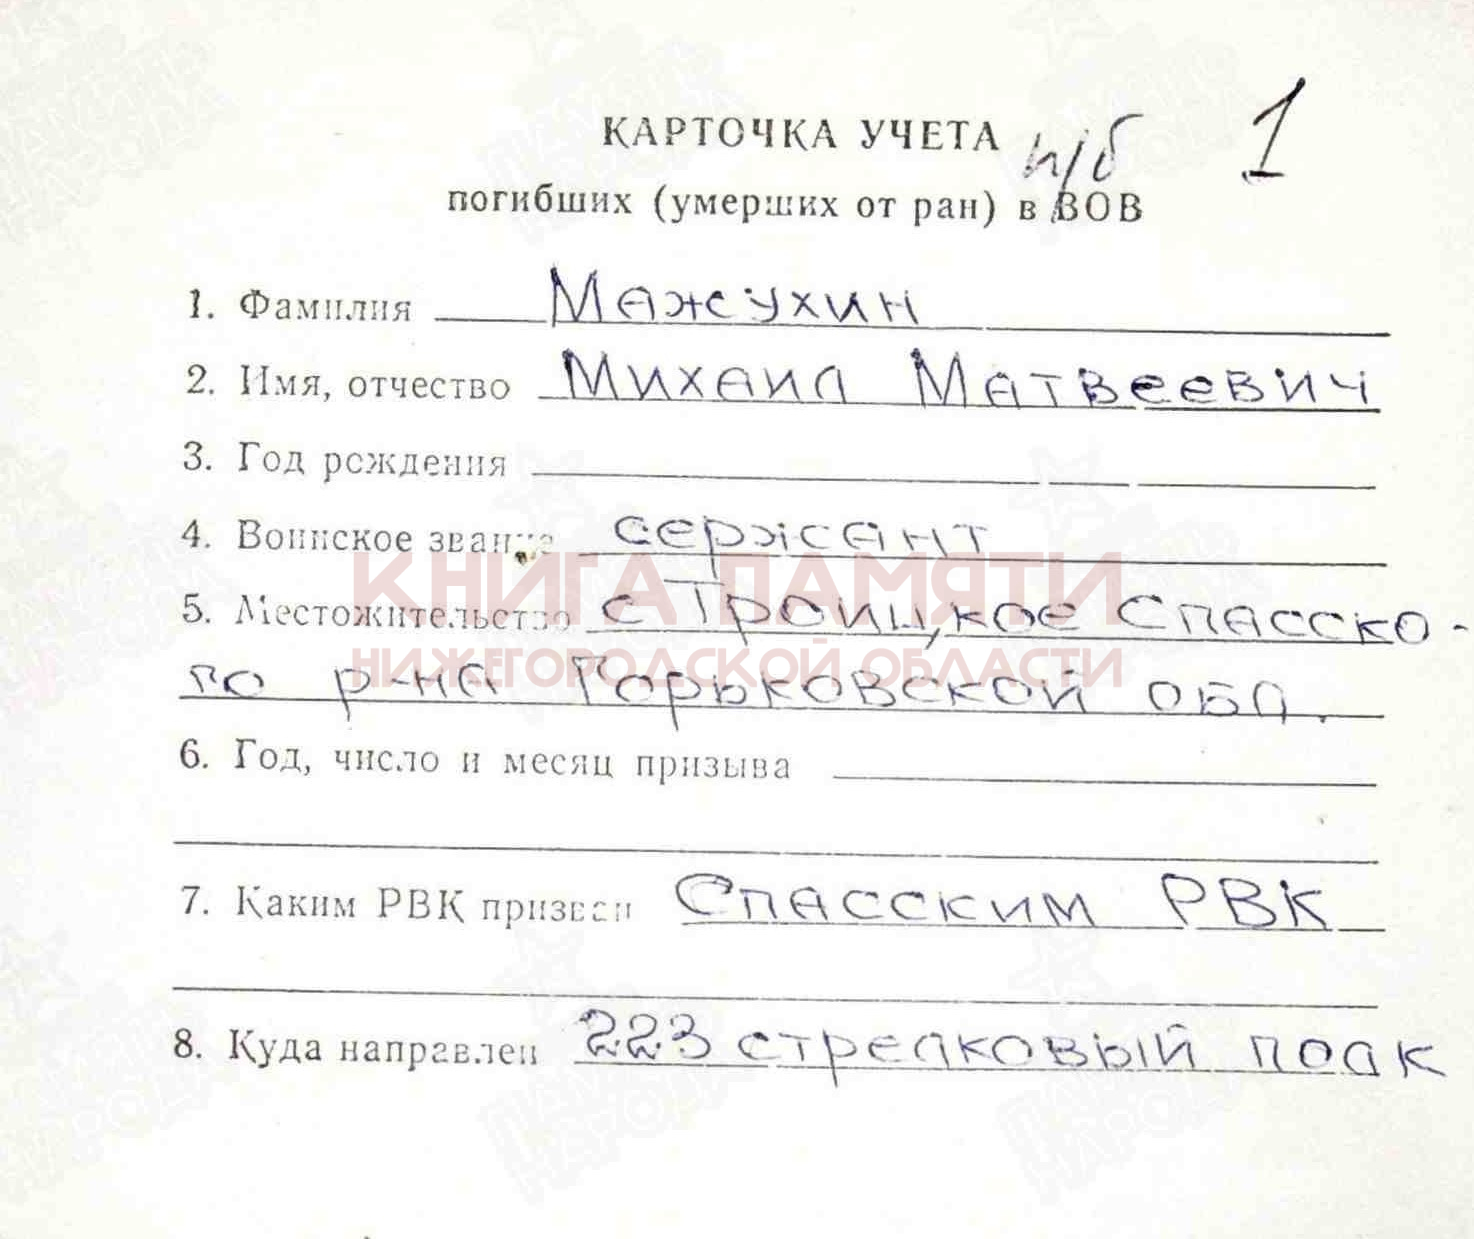 КАРТОЧКА УЧЕТА п/б 1
погибших (умерших от ран) в ВОВ
1. Фамилия Мажухин
2. Имя, отчество Михаил Матвеевич
3. Год рождения
4. Воинское звание сержант
КНИГА ПАМЯТИ
5. Местожительство с Троицкое Спасско-
НИЖЕГОРОДСКОЙ ОБЛАСТИ
го р-на Горьковской обл.
6. Год, число и месяц призыва
7. Каким РВК призван Спасским РВК
8. Куда направлен 223 стрелковый полк